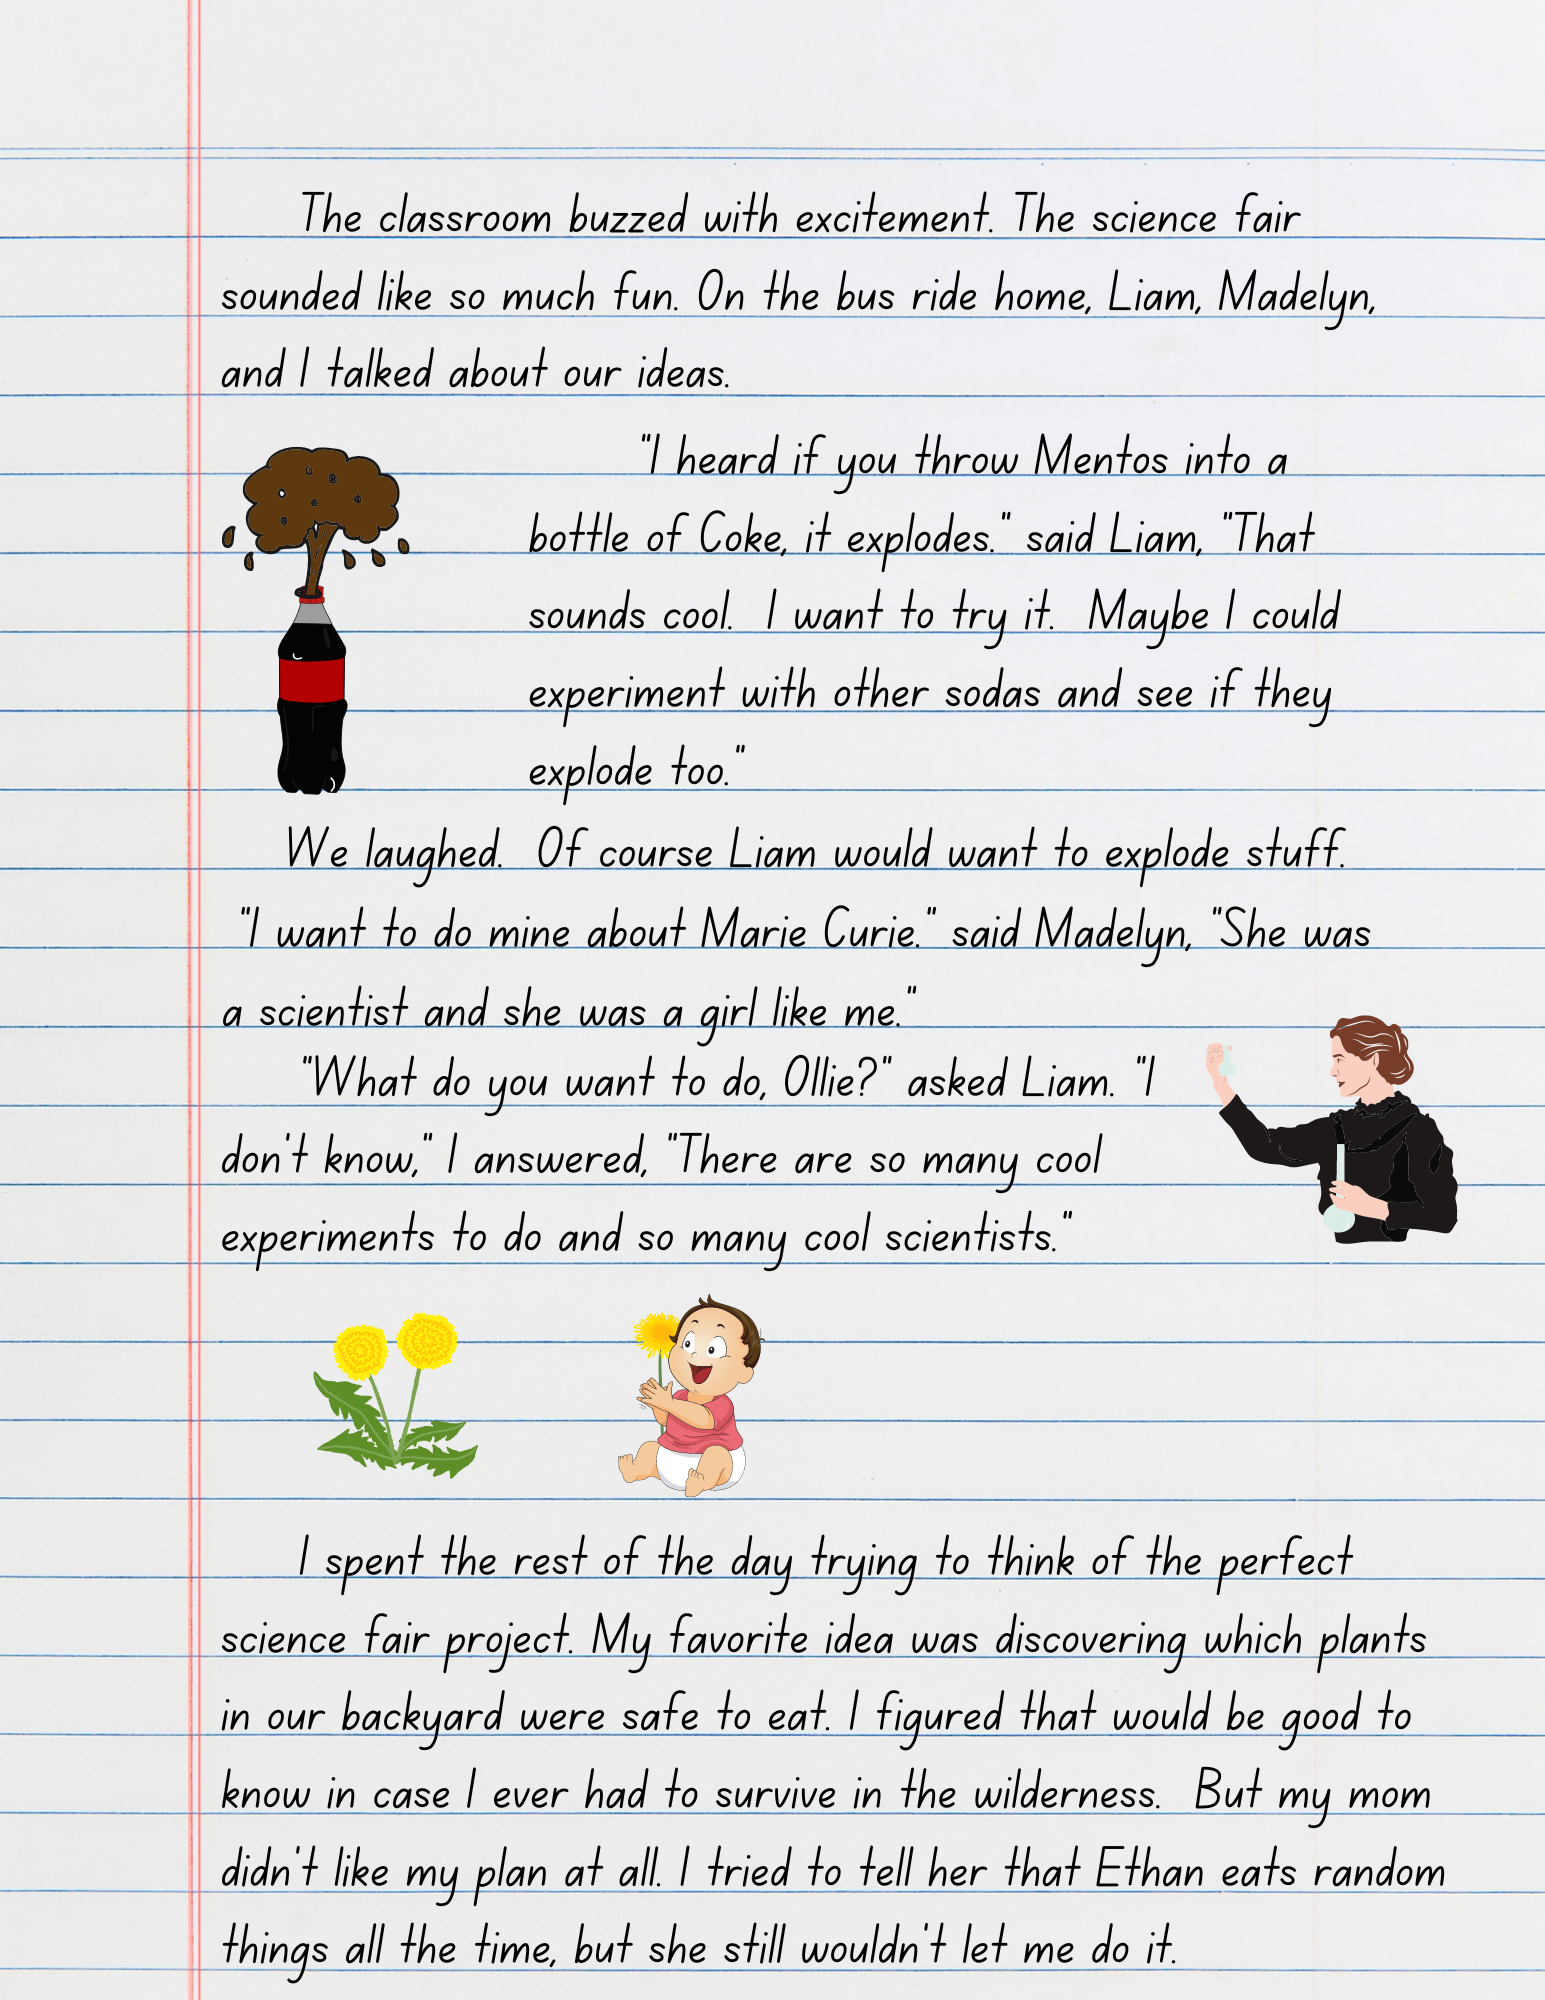 The classroom buzzed with excitement. The science fair
sounded like so much fun. On the bus ride home, Liam, Madelyn,
and I talked about our ideas.
"I heard if you throw Mentos into a
bottle of Coke, it explodes." said Liam, "That
sounds cool.  I want to try it.  Maybe I could
experiment with other sodas and see if they
explode too."
We laughed.  Of course Liam would want to explode stuff.
"I want to do mine about Marie Curie." said Madelyn, "She was
a scientist and she was a girl like me."
"What do you want to do, Ollie?" asked Liam. "I
don't know," I answered, "There are so many cool
experiments to do and so many cool scientists."
I spent the rest of the day trying to think of the perfect
science fair project. My favorite idea was discovering which plants
in our backyard were safe to eat. I figured that would be good to
know in case I ever had to survive in the wilderness.  But my mom
didn't like my plan at all. I tried to tell her that Ethan eats random
things all the time, but she still wouldn't let me do it.